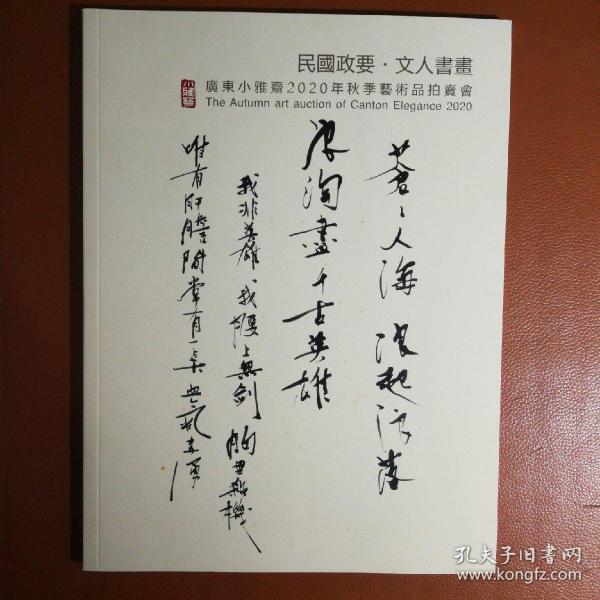 民國政要·文人書畫
小雅齋
廣東小雅齋2020年秋季藝術品拍賣會
The Autumn art auction of Canton Elegance 2020
蒼〻人海 浪起浪落
浪淘盡千古英雄
我非英雄 我腰上無劍 胸無殺機
唯有肝膽間常有一點血氣
孔夫子旧书网
www.kongfz.com